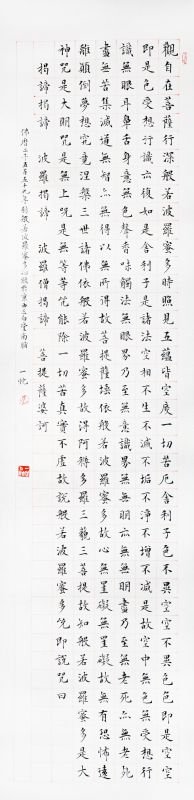 觀自在菩薩行深般若波羅蜜多時照見五蘊皆空度一切苦厄舍利子色不異空空不異色色即是空空
即是色受想行識亦復如是舍利子是諸法空相不生不滅不垢不淨不增不減是故空中無色無受想行
識無眼耳鼻舌身意無色聲香味觸法無眼界乃至無意識界無無明亦無無明盡乃至無老死亦無老死
盡無苦集滅道無智亦無得以無所得故菩提薩埵依般若波羅蜜多故心無罣礙無罣礙故無有恐怖遠
離顛倒夢想究竟涅槃三世諸佛依般若波羅蜜多故得阿耨多羅三藐三菩提故知般若波羅蜜多是大
神咒是大明咒是無上咒是無等等咒能除一切苦真實不虛故說般若波羅蜜多咒即說咒曰
揭諦揭諦 波羅揭諦 波羅僧揭諦 菩提薩婆訶
佛曆二千五百五十九年 般若波羅蜜多心經